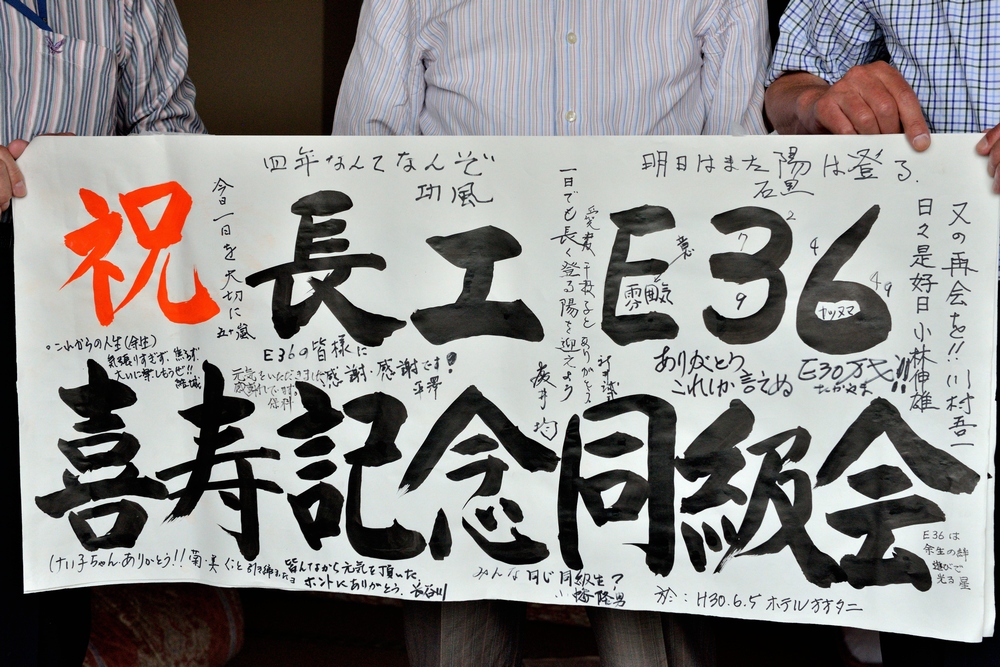 四年なんてなんぞ
功風
明日はまた陽は登る.
石黒
祝 長工 E36
喜寿記念同級会
今日一日を大切に 五十嵐
一日でも長く登る陽を迎えよう
又の再会を!! 川村吾一
日々是好日 小林伸雄
。これからの人生(余生)
気張りすぎず、焦らず、
大いに楽しもうぜ!!
結城
E36の皆様に
感謝・感謝です!
平澤
元気をいただきました
感謝いたします。
保科
雰囲気
ヤツヌマ
ありがとう
これしか言えぬ
E30万才!!
たかやま
けい子ちゃんありがとう!!
皆んなから元気を頂いた、
ホントにありがとう、長谷川
みんな同じ同級生?
小幡隆男
於:H30.6.5 ホテルオオタニ
E36は
余生の絆
遊びで
光る 星